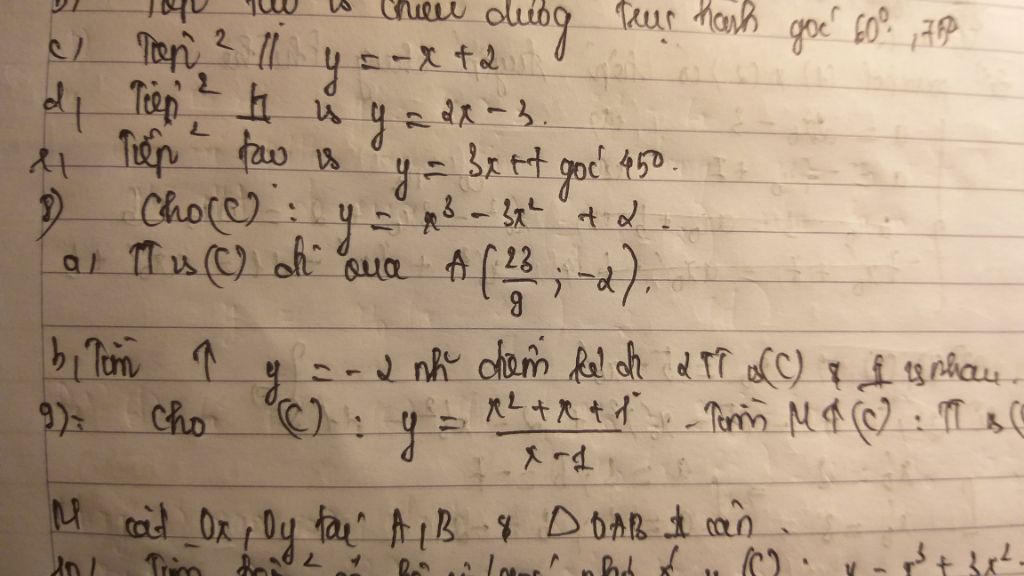 b) Tiếp tạo vs chiều dương trục hành góc 60°, 75°
c) Tiếp² // y = -x + 2
d, Tiếp² ⊥ vs y = 2x - 3.
Tiếp² tạo vs y = 3x + 7 góc 45°.
8) Cho (C) : y = x³ - 3x² + 2.
a, TT vs (C) đi qua A(23/9 ; -2).
b, Tìm ↑ y = -2 nh~ điểm kẻ đc 2 TT (C) & ⊥ vs nhau.
9) = Cho (C) : y = (x² + x + 1)/(x - 1) - Tìm M ↑ (C) : TT vs (
M cắt Ox, Oy tại A, B & Δ OAB ⊥ cân.
10, Tìm (C) : y = x³ + 3x²